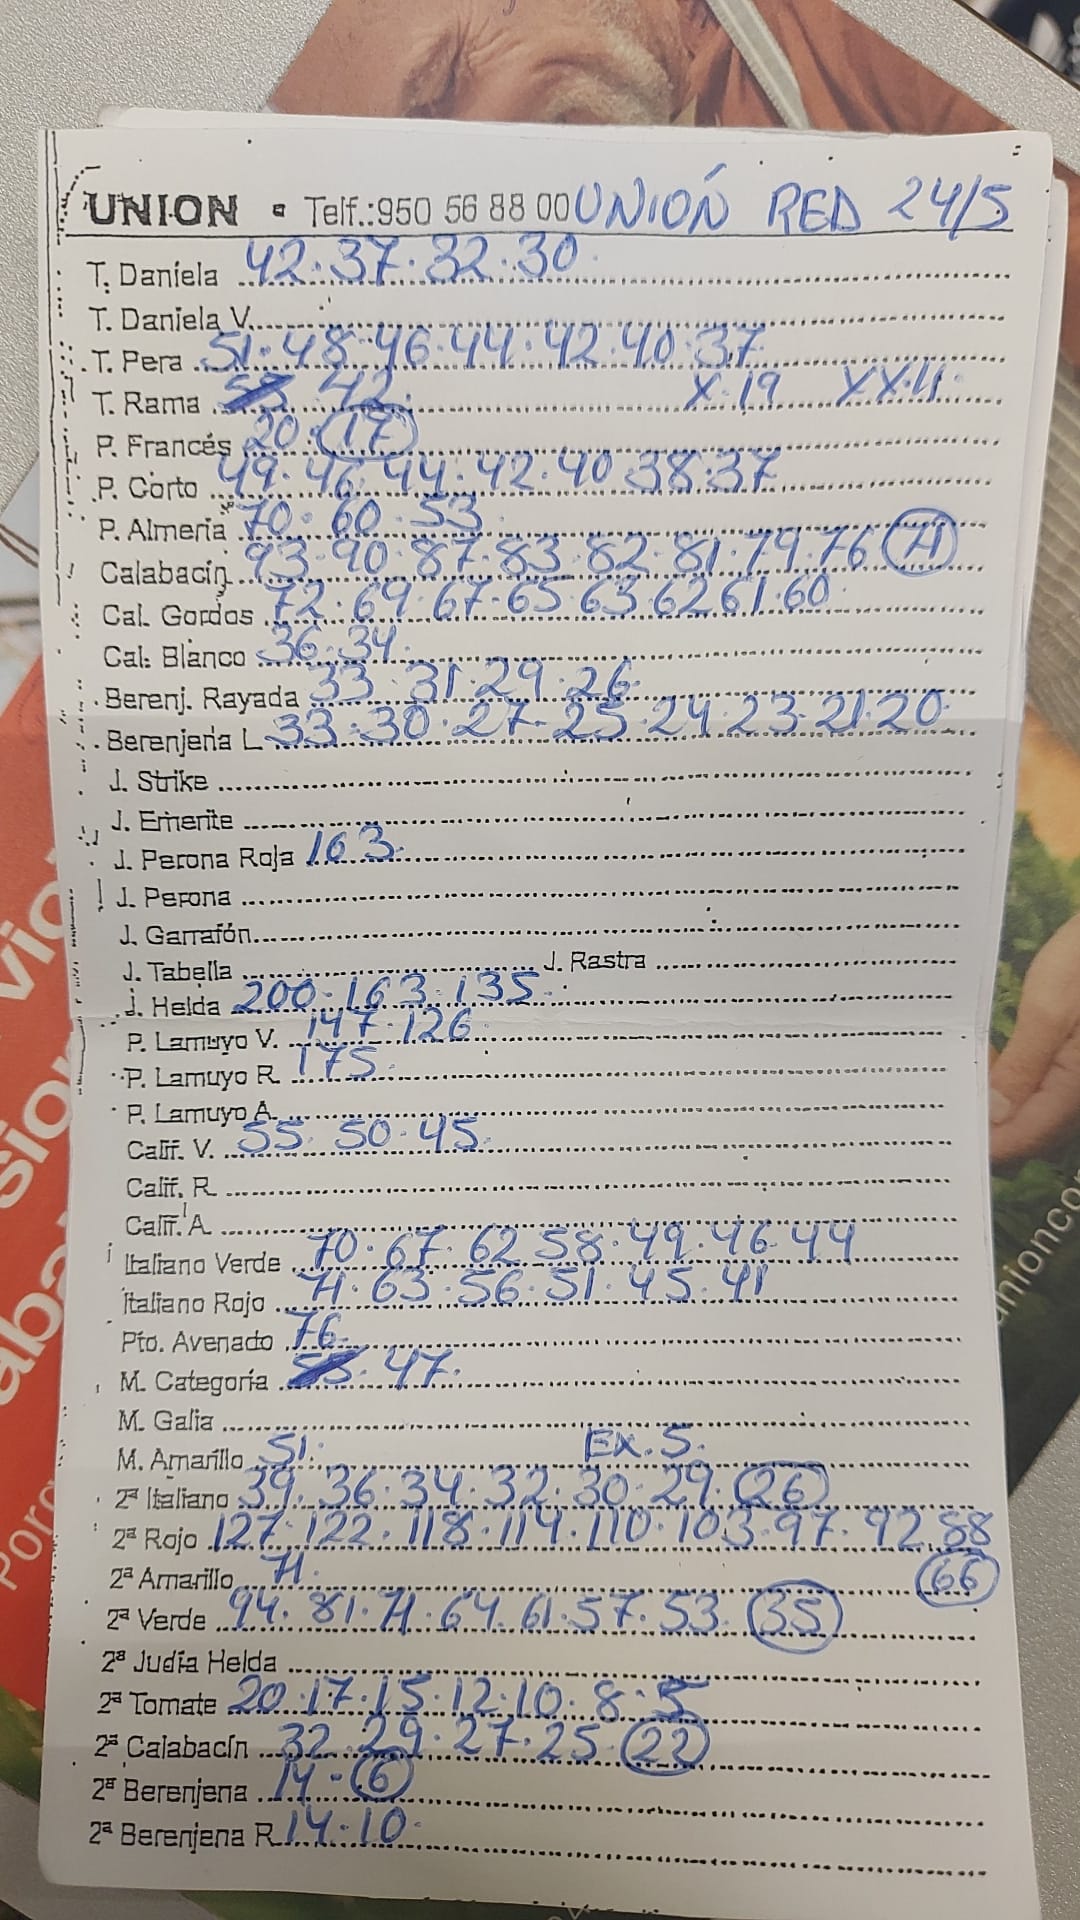 UNION • Telf.:950 56 88 00 UNIÓN RED 24/5
T. Daniela 42.37.32.30.
T. Daniela V.
T. Pera 51.48.46.44.42.40.37
T. Rama 42. X.19 XX.11.
P. Francés 20.(17)
P. Corto 49.46.44.42.40 38.37
P. Almeria 70.60.53.
Calabacín 93.90.87.83.82.81.79.76 (71)
Cal. Gordos 72.69.67.65.63.62 61.60.
Cal. Blanco 36.34.
Berenj. Rayada 33.31.29.26.
Berenjena L 33.30.27.25.24.23.21.20.
J. Strike
J. Emerite
J. Perona Roja 163.
J. Perona
J. Garrafón
J. Tabella J. Rastra
J. Helda 200.163.135.
P. Lamuyo V. 147.126.
P. Lamuyo R. 175.
P. Lamuyo A.
Calif. V. 55.50.45.
Calif. R.
Calif. A.
Italiano Verde 70.67.62 58.49.46.44
Italiano Rojo 71.63.56.51.45.41
Pto. Avenado 76.
M. Categoría 47.
M. Galia
M. Amarillo 51. EX.5.
2ª Italiano 39.36.34.32.30.29.(26)
2ª Rojo 127.122.118.114.110.103.97.92.88
(66)
2ª Amarillo 71.
2ª Verde 94.81.71.64.61.57.53.(35)
2ª Judía Helda
2ª Tomate 20.17.15.12.10.8.5
2ª Calabacín 32.29.27.25.(22)
2ª Berenjena 14-(6)
2ª Berenjena R 14.10.